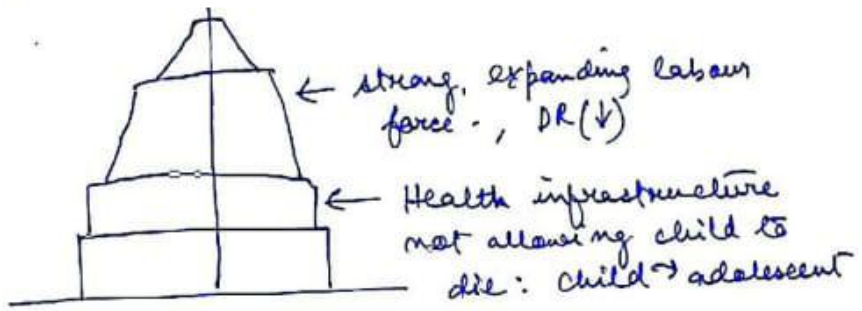 ← strong, expanding labour
force., DR(↓)
← Health infrastructure
not allowing child to
die: child → adolescent